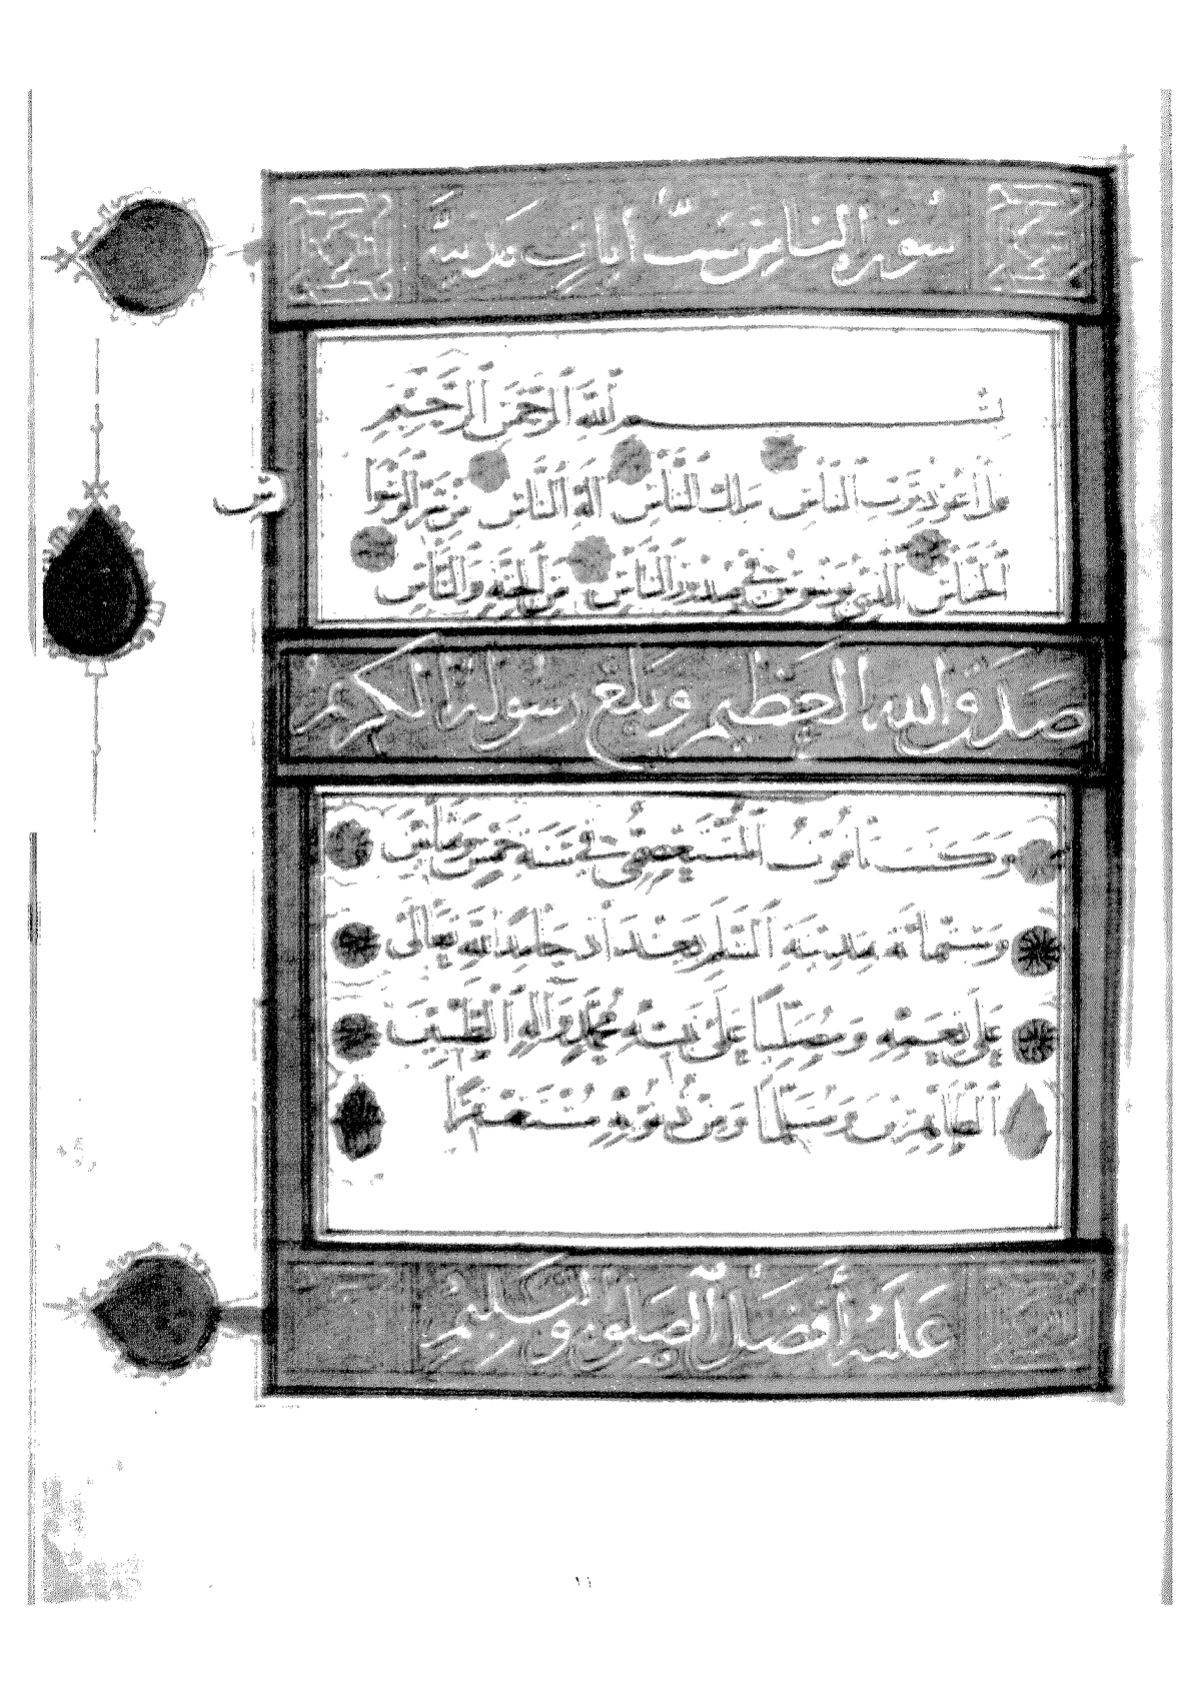 سورة الناس ست آيات مدنية
بِسْمِ اللَّهِ الرَّحْمَنِ الرَّحِيمِ
قل أعوذ برب الناس ملك الناس إله الناس من شر الوسواس
الخناس الذي يوسوس في صدور الناس من الجنة والناس
صدق الله العظيم وبلغ رسوله الكريم
وكتب ياقوت المستعصمي في سنة خمس وثمانين
وستمائة بمدينة السلم بغداد حامدا لله تعالى
على نعمه ومصليا على نبيه محمد وآله الطيبين
الطاهرين ومسلما ومن ذنوبه مستغفرا
عليه أفضل الصلوة والتسليم
١٦